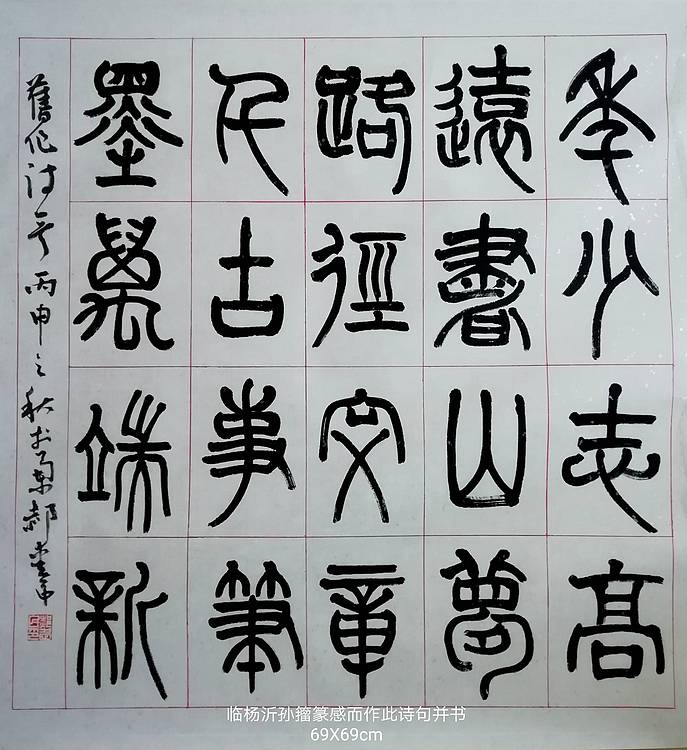 年少志高
遠書山夢
路徑文章
千古事筆
墨萬端新
舊作詩 丙申之秋於 郝
临杨沂孙籀篆感而作此诗句并书
69X69cm